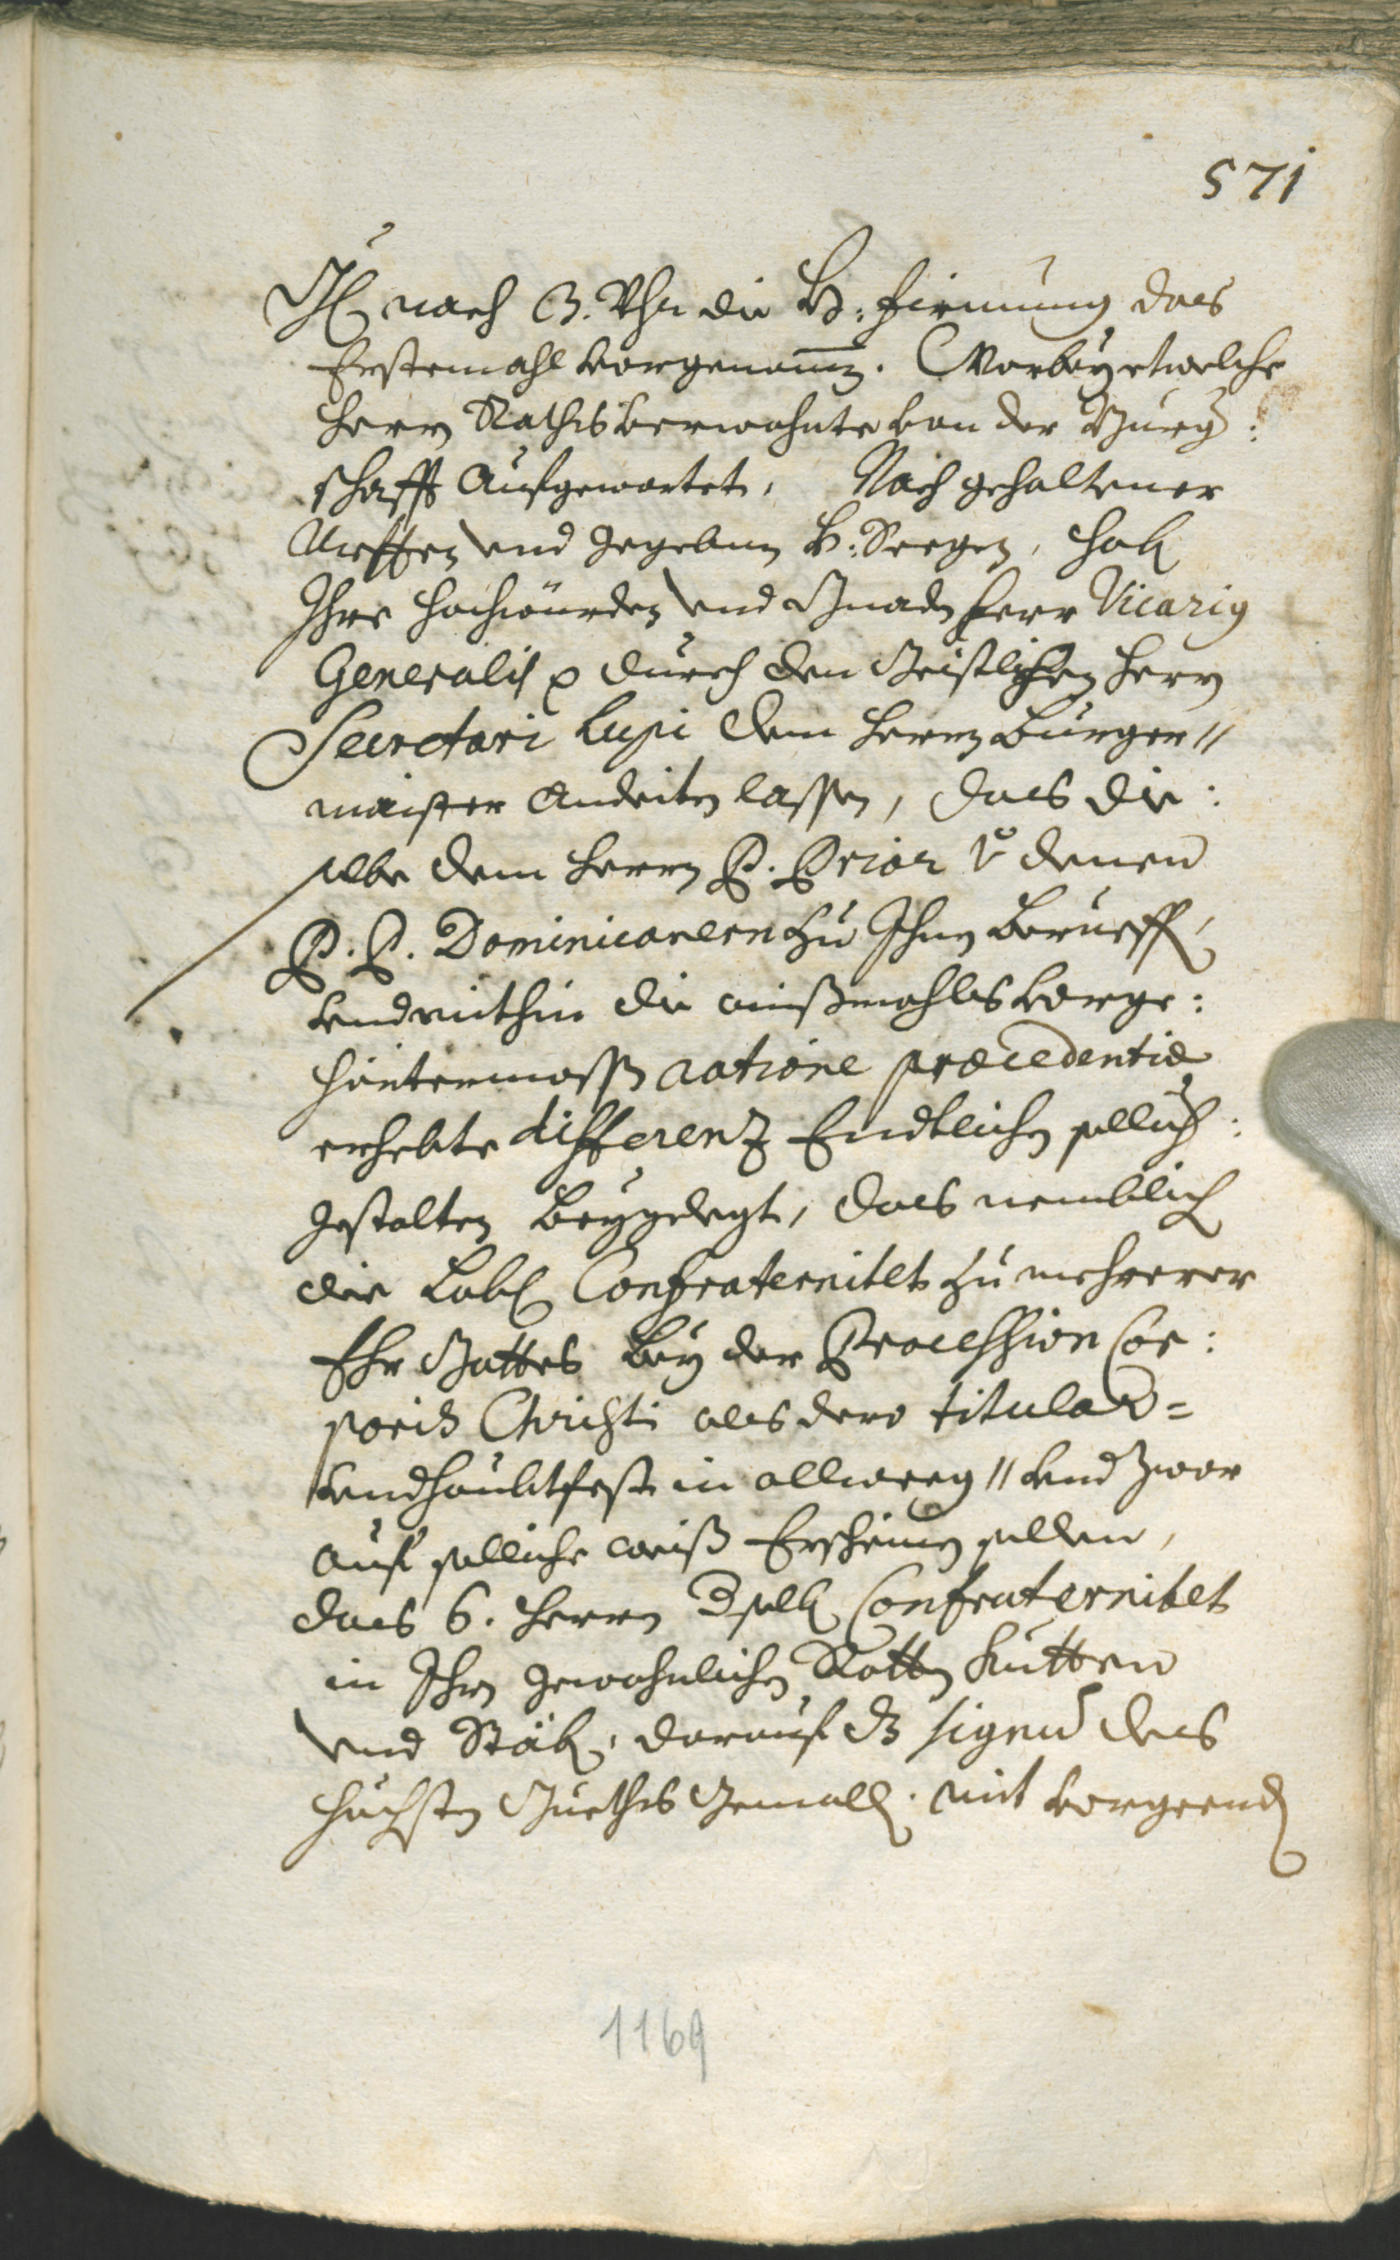 571
nach 3. Uhr die H: Firmung das
Erstemahl vorgenom̄en. Worbey etwelche
Herrn Raths Verwohnte von der Burg:
schafft Aufgewartet, Nach gehaltener
Meßßen und gegebnen H: Seegen, hab
Ihre Hochwürden und Gnaden Herr Vicarius
Generalis durch den Geistlichen Herrn
Secretari Lupi dem Herrn Burger//
maister Andeiten lassen, das die:
selbe dem Herrn P. Prior v denen
P. P. Dominicanern zu Ihnen Berueffen,
vnd mithin die vorge:
ratione præcedentiæ
erhebte differenz Endtlichen sollich:
gestalten Beygelegt, das nemblich
die Lobl Confraternitet zu mehrerer
Ehr Gottes bey der Procession Cor:
poris Christi als dero titular=
vnd haubtfest in allweeg // vnd zwar
Auf solliche weiß Erscheinen sollen,
das 6. Herrn Confraternitet
in Ihren gewohnlichen Rotten Kutten
und Stäb, darauf dz signum des
höchsten Gueths Gemalt. mit vorgeend
1169